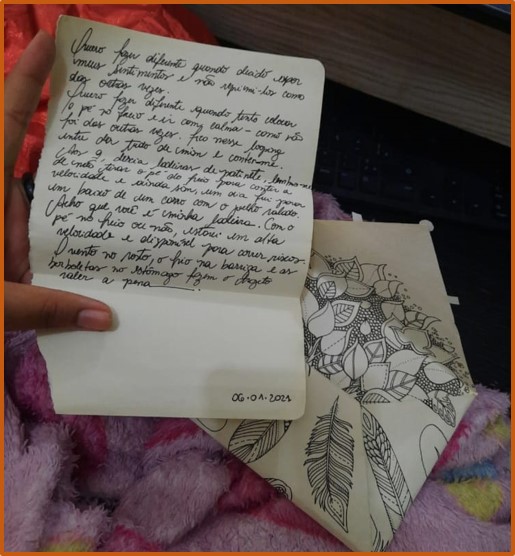 Quero fazer diferente quando decido expor
meus sentimentos e não reprimi-los como
das outras vezes.
Quero fazer diferente quando tento colocar
o pé no freio e ir com calma - como não
foi das outras vezes. Fico nesse
entre dar tudo de mim e conter-me.
Aos 9, descia ladeiras de patinete, lembro-me
de não tirar o pé do freio para conter a
velocidade e ainda sim, um dia fui parar
em baixo de um carro com o joelho ralado.
Acho que você é minha ladeira. Com o
pé no freio ou não, estou em alta
velocidade e disponível para correr riscos.
O vento no rosto, o frio na barriga e as
borboletas no estômago fazem o
valer a pena
06.01.2021